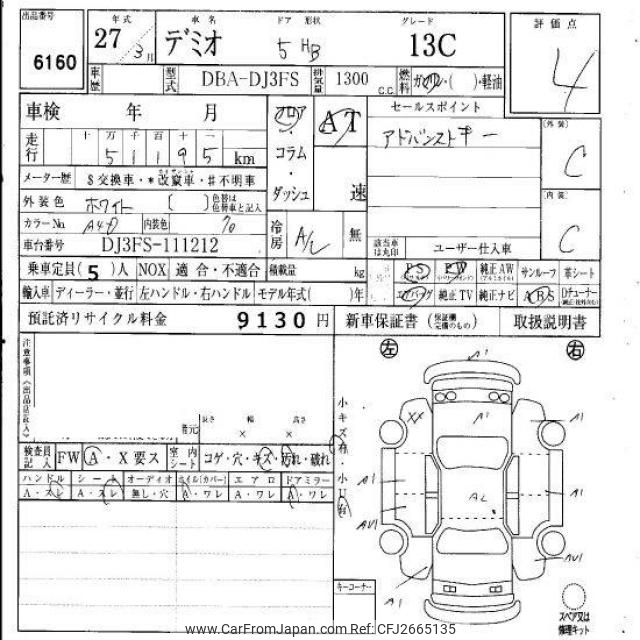 出品番号 年式 車名 ドア 形状 グレード 評価点
6160 27 3月 デミオ 5 HB 13C 4
車歴 型式 DBA-DJ3FS 排気量 1300 C.C. 燃料 ガソリン・( )・軽油
車検 年 月 フロア AT セールスポイント
アドバンストキー
走行 十 万 千 百 十 一 コラム [外装]
5 1 1 9 5 km C
メーター歴 $交換車・*改竄車・#不明車 ダッシュ 速 [内装]
外装色 ホワイト ( ) 色替は色替車と記入 C
カラーNo A4D 内装色 70 冷房 A/C 無
車台番号 DJ3FS-111212 該当車は丸印 ユーザー仕入車
乗車定員(5)人 NOX 適合・不適合 積載量 kg PS PW 純正AW サンルーフ 革シート
輸入車 ディーラー・並行 左ハンドル・右ハンドル モデル年式( )年 エアバッグ 純正TV 純正ナビ ABS
預託済リサイクル料金 9130円 新車保証書 取扱説明書
注意事項《出品店記入》 左 右
長さ 幅 高さ
諸元 × ×
小キズ有・小U有
検査員記入 FW A・X要ス 室内シート コゲ・穴・キズ・汚れ・破れ
ハンドル シート オーディオ ホイル(カバー) エアロ ドアミラー
A・スレ A・スレ 無し・穴 A・ワレ A・ワレ A・ワレ
A1
XX A1 A1
A1 A1
AL
AU1 AU1
A1
キーコーナー
スペア又は修理キット
www.CarFromJapan.com Ref: CFJ2665135